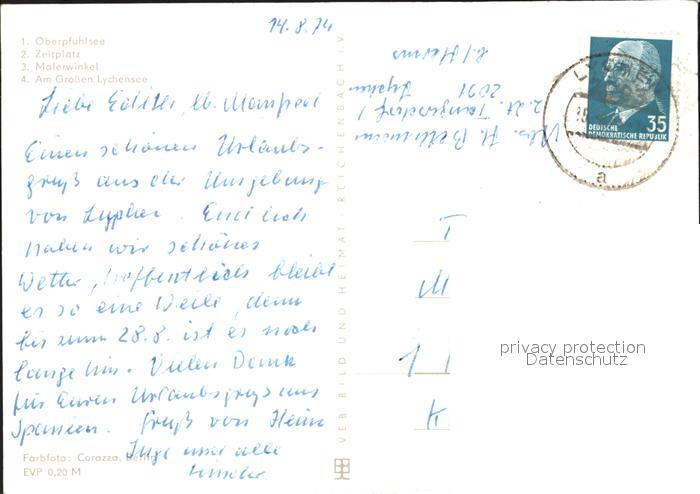 14.8.74
1. Oberpfuhlsee
2. Zeltplatz
3. Malerwinkel
4. Am Großen Lychensee
Liebe Edith, lb. Manfred
Einen schönen Urlaubs-
gruß aus der Umgebung
von Lychen. Endlich
haben wir schönes
Wetter, hoffentlich bleibt
es so eine Weile, denn
bis zum 28.8. ist es noch
lange hin. Vielen Dank
für Euren Urlaubsgruß aus
Spanien. Gruß von Heinz
Inge und alle
Kinder
Farbfoto: Corazza, Berlin
EVP 0,20 M
VEB BILD UND HEIMAT · REICHENBACH I. V.
Abs. H.
z. Zt.
2091
DEUTSCHE
DEMOKRATISCHE REPUBLIK
35
LYCHEN
a
privacy protection
Datenschutz